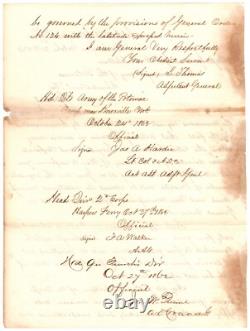 be governed by the provisions of General Orders
No 126 with the latitude
I am General Very Respectfully
Your Obedient Servant
(Signed) L Thomas
Adjutant General
Hd Qrs Army of the Potomac
Camp near Knoxville Md
October 24th 1862
Official
Signed Jas A Hardie
Lt Col A.D.C.
Act Asst Adjt Genl
Head Qrs 2d Corps
Harpers Ferry Oct 27th 1862
Official
Signed F A Walker
A.A.G
Hd Qrs Div
Oct 27th 1862
Official